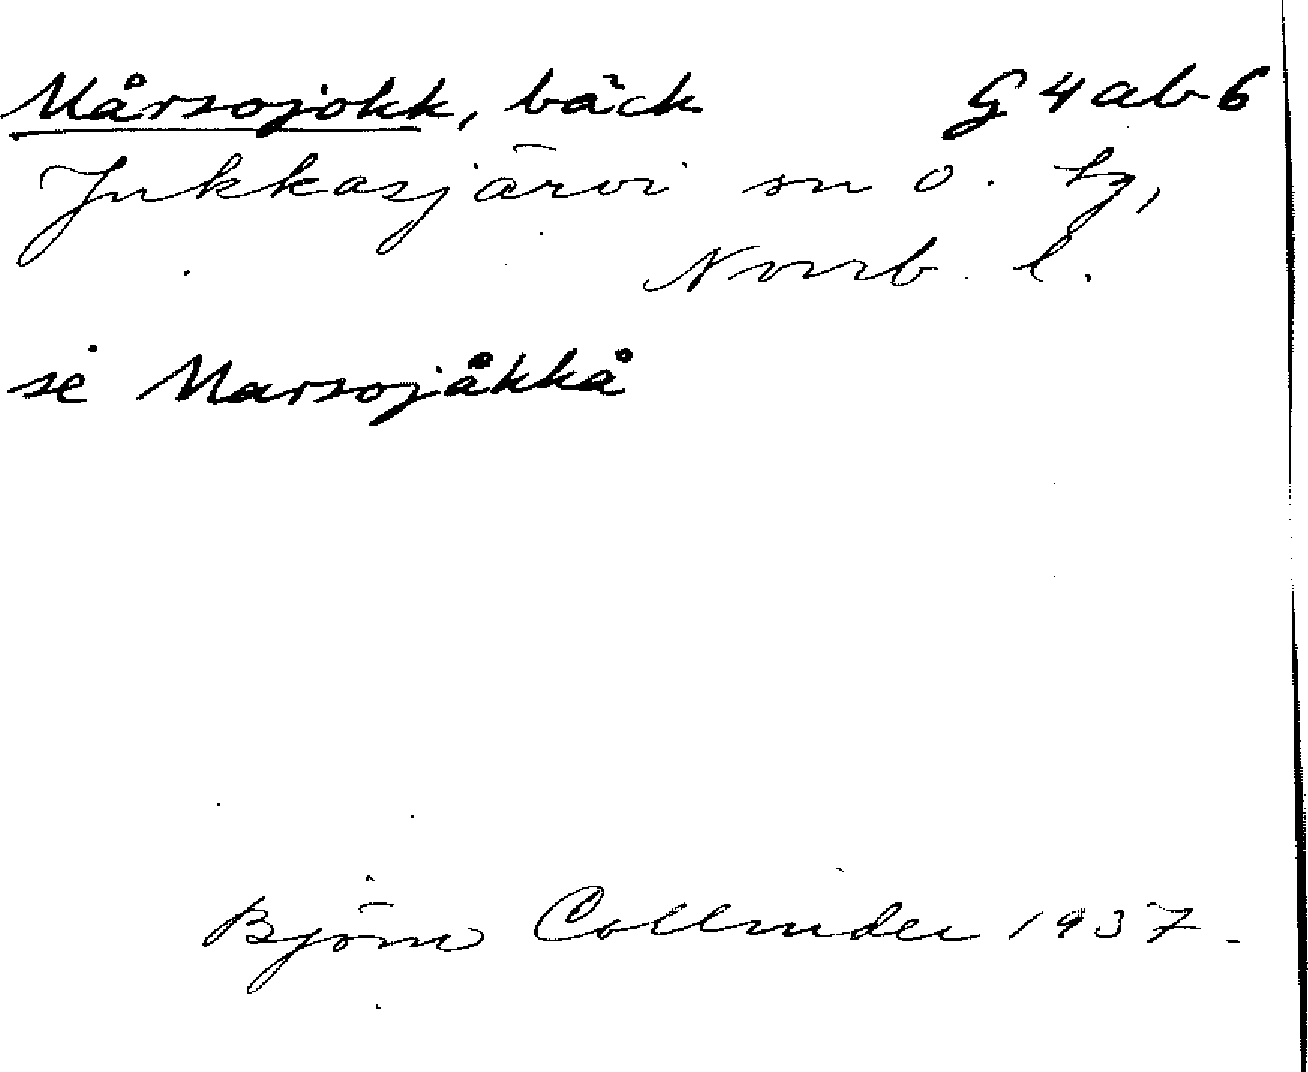 Mårsojokk, bäck G 4 ab 6
Jukkasjärvi sn o. tg,
Norrb. l.
se Marsojåkkå
Björn Collinder 1937.